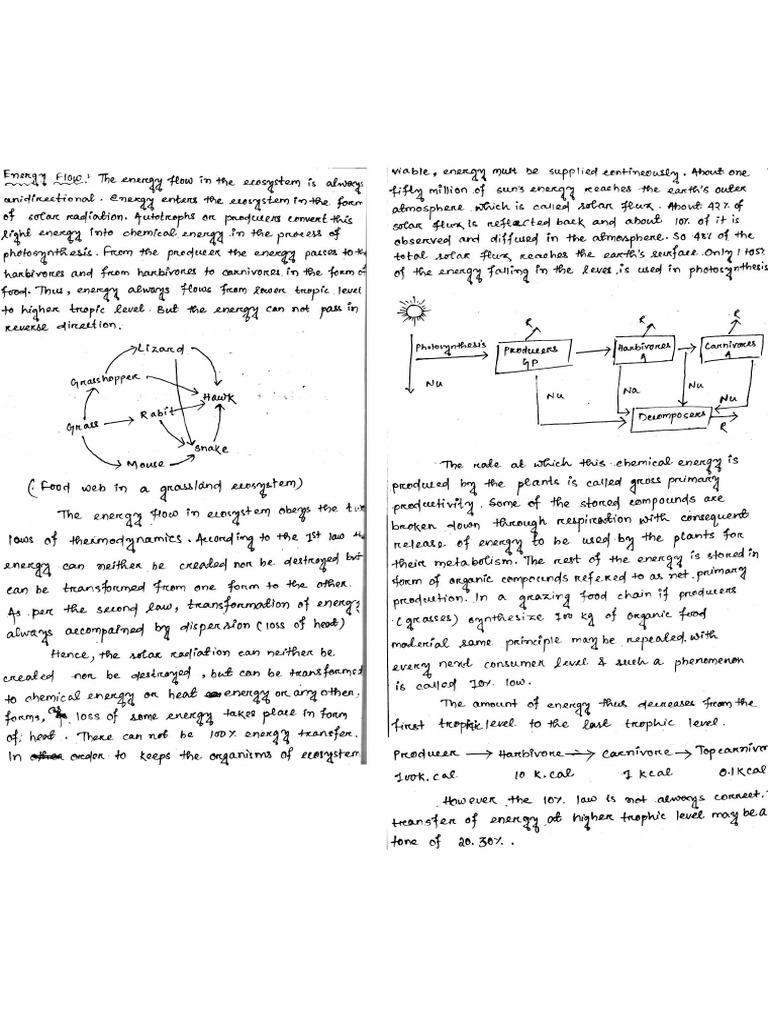 Energy Flow: The energy flow in the ecosystem is always
unidirectional. Energy enters the ecosystem in the form
of solar radiation. Autotrophs or producers convert this
light energy into chemical energy in the process of
photosynthesis. From the producer the energy passes to the
harbivores and from harbivores to carnivores in the form of
food. Thus, energy always flows from lower tropic level
to higher tropic level. But the energy can not pass in
reverse direction.
Lizard
Grasshopper
Hawk
Rabit
Grass
Snake
Mouse
(Food web in a grassland ecosystem)
The energy flow in ecosystem obeys the
laws of thermodynamics. According to the 1st law the
energy can neither be created nor be destroyed but
can be transformed from one form to the other.
As per the second law, transformation of energy
always accompained by dispersion (loss of heat)
Hence, the solar radiation can neither be
created nor be destroyed, but can be transformed
to chemical energy or heat energy or any other
forms, as loss of some energy takes place in form
of heat. There can not be 100% energy transfer.
In order to keeps the organisms of ecosystem
viable, energy must be supplied contineously. About one
fifty million of sun's energy reaches the earth's outer
atmosphere which is called solar flux. About 42% of
solar flux is reflected back and about 10% of it is
observed and diffused in the atmosphere. So 48% of the
total solar flux reaches the earth's surface. Only 1 to5%
of the energy falling in the leves, is used in photosynthesis
Photosynthesis
Nu
R
Producers
GP
Nu
R
Harbivores
A
Na
Nu
R
Carnivores
A
Nu
Decomposers
R
The rate at which this chemical energy is
produced by the plants is called gross primary
productivity. Some of the stored compounds are
broken down through respiration with consequent
release of energy to be used by the plants for
their metabolism. The rest of the energy is stored in
form of organic compounds refered to as net primary
production. In a grazing food chain if producers
(grasses) synthesize 100 kg of organic food
material same principle may be repeated with
every next consumer level & such a phenomenon
is called 10% low.
The amount of energy thus decreases from the
first trophic level to the last trophic level.
Producer → Harbivore → Carnivore → Top carnivor
100k.cal 10 k.cal 1 kcal 0.1 kcal
However the 10% law is not always correct.
transfer of energy at higher trophic level may be a
tone of 20.30%.